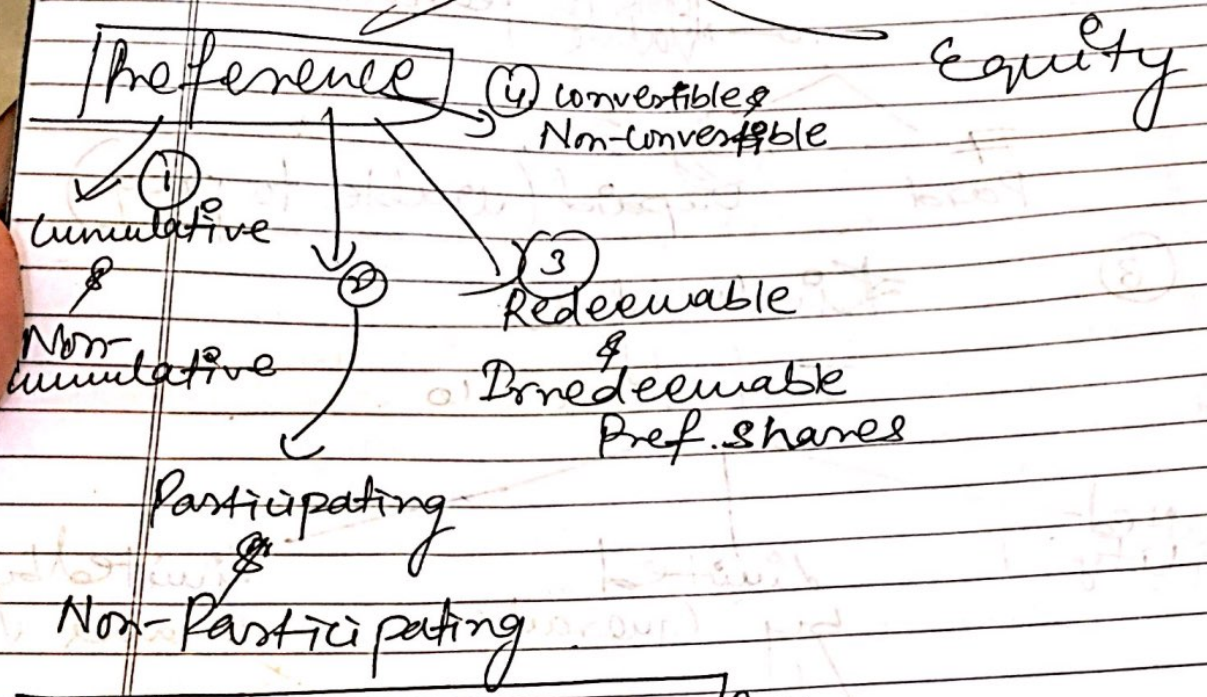 Preference
Equity
④ Convertible &
Non-Convertible
①
Cumulative
&
Non-
cumulative
②
③
Redeemable
&
Irredeemable
Pref. shares
Participating
&
Non-Participating